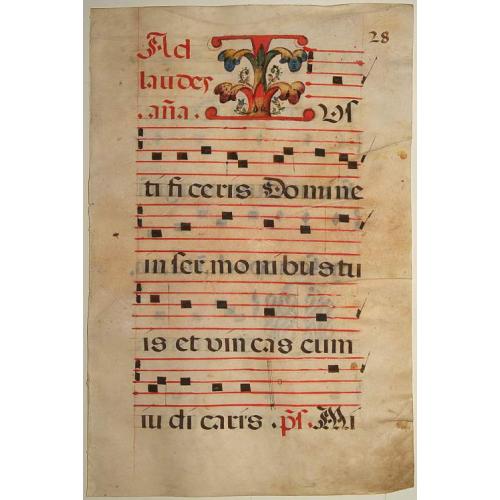 Ad 28
laudes
.aña. I Us
ti fi ceris Domine
in ser mo nibus tu
is et vin cas cum
iu di caris . ps. Mi